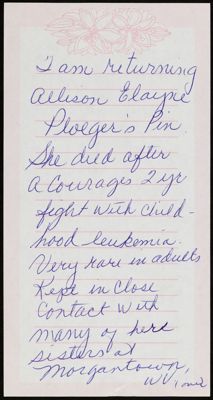 I am returning
Allison Elayne
Ploeger's Pin.
She died after
a courages 2 yr
fight with child-
hood leukemia.
Very rare in adults
Kept in close
contact with
many of here
sisters at
Morgantown,
WV